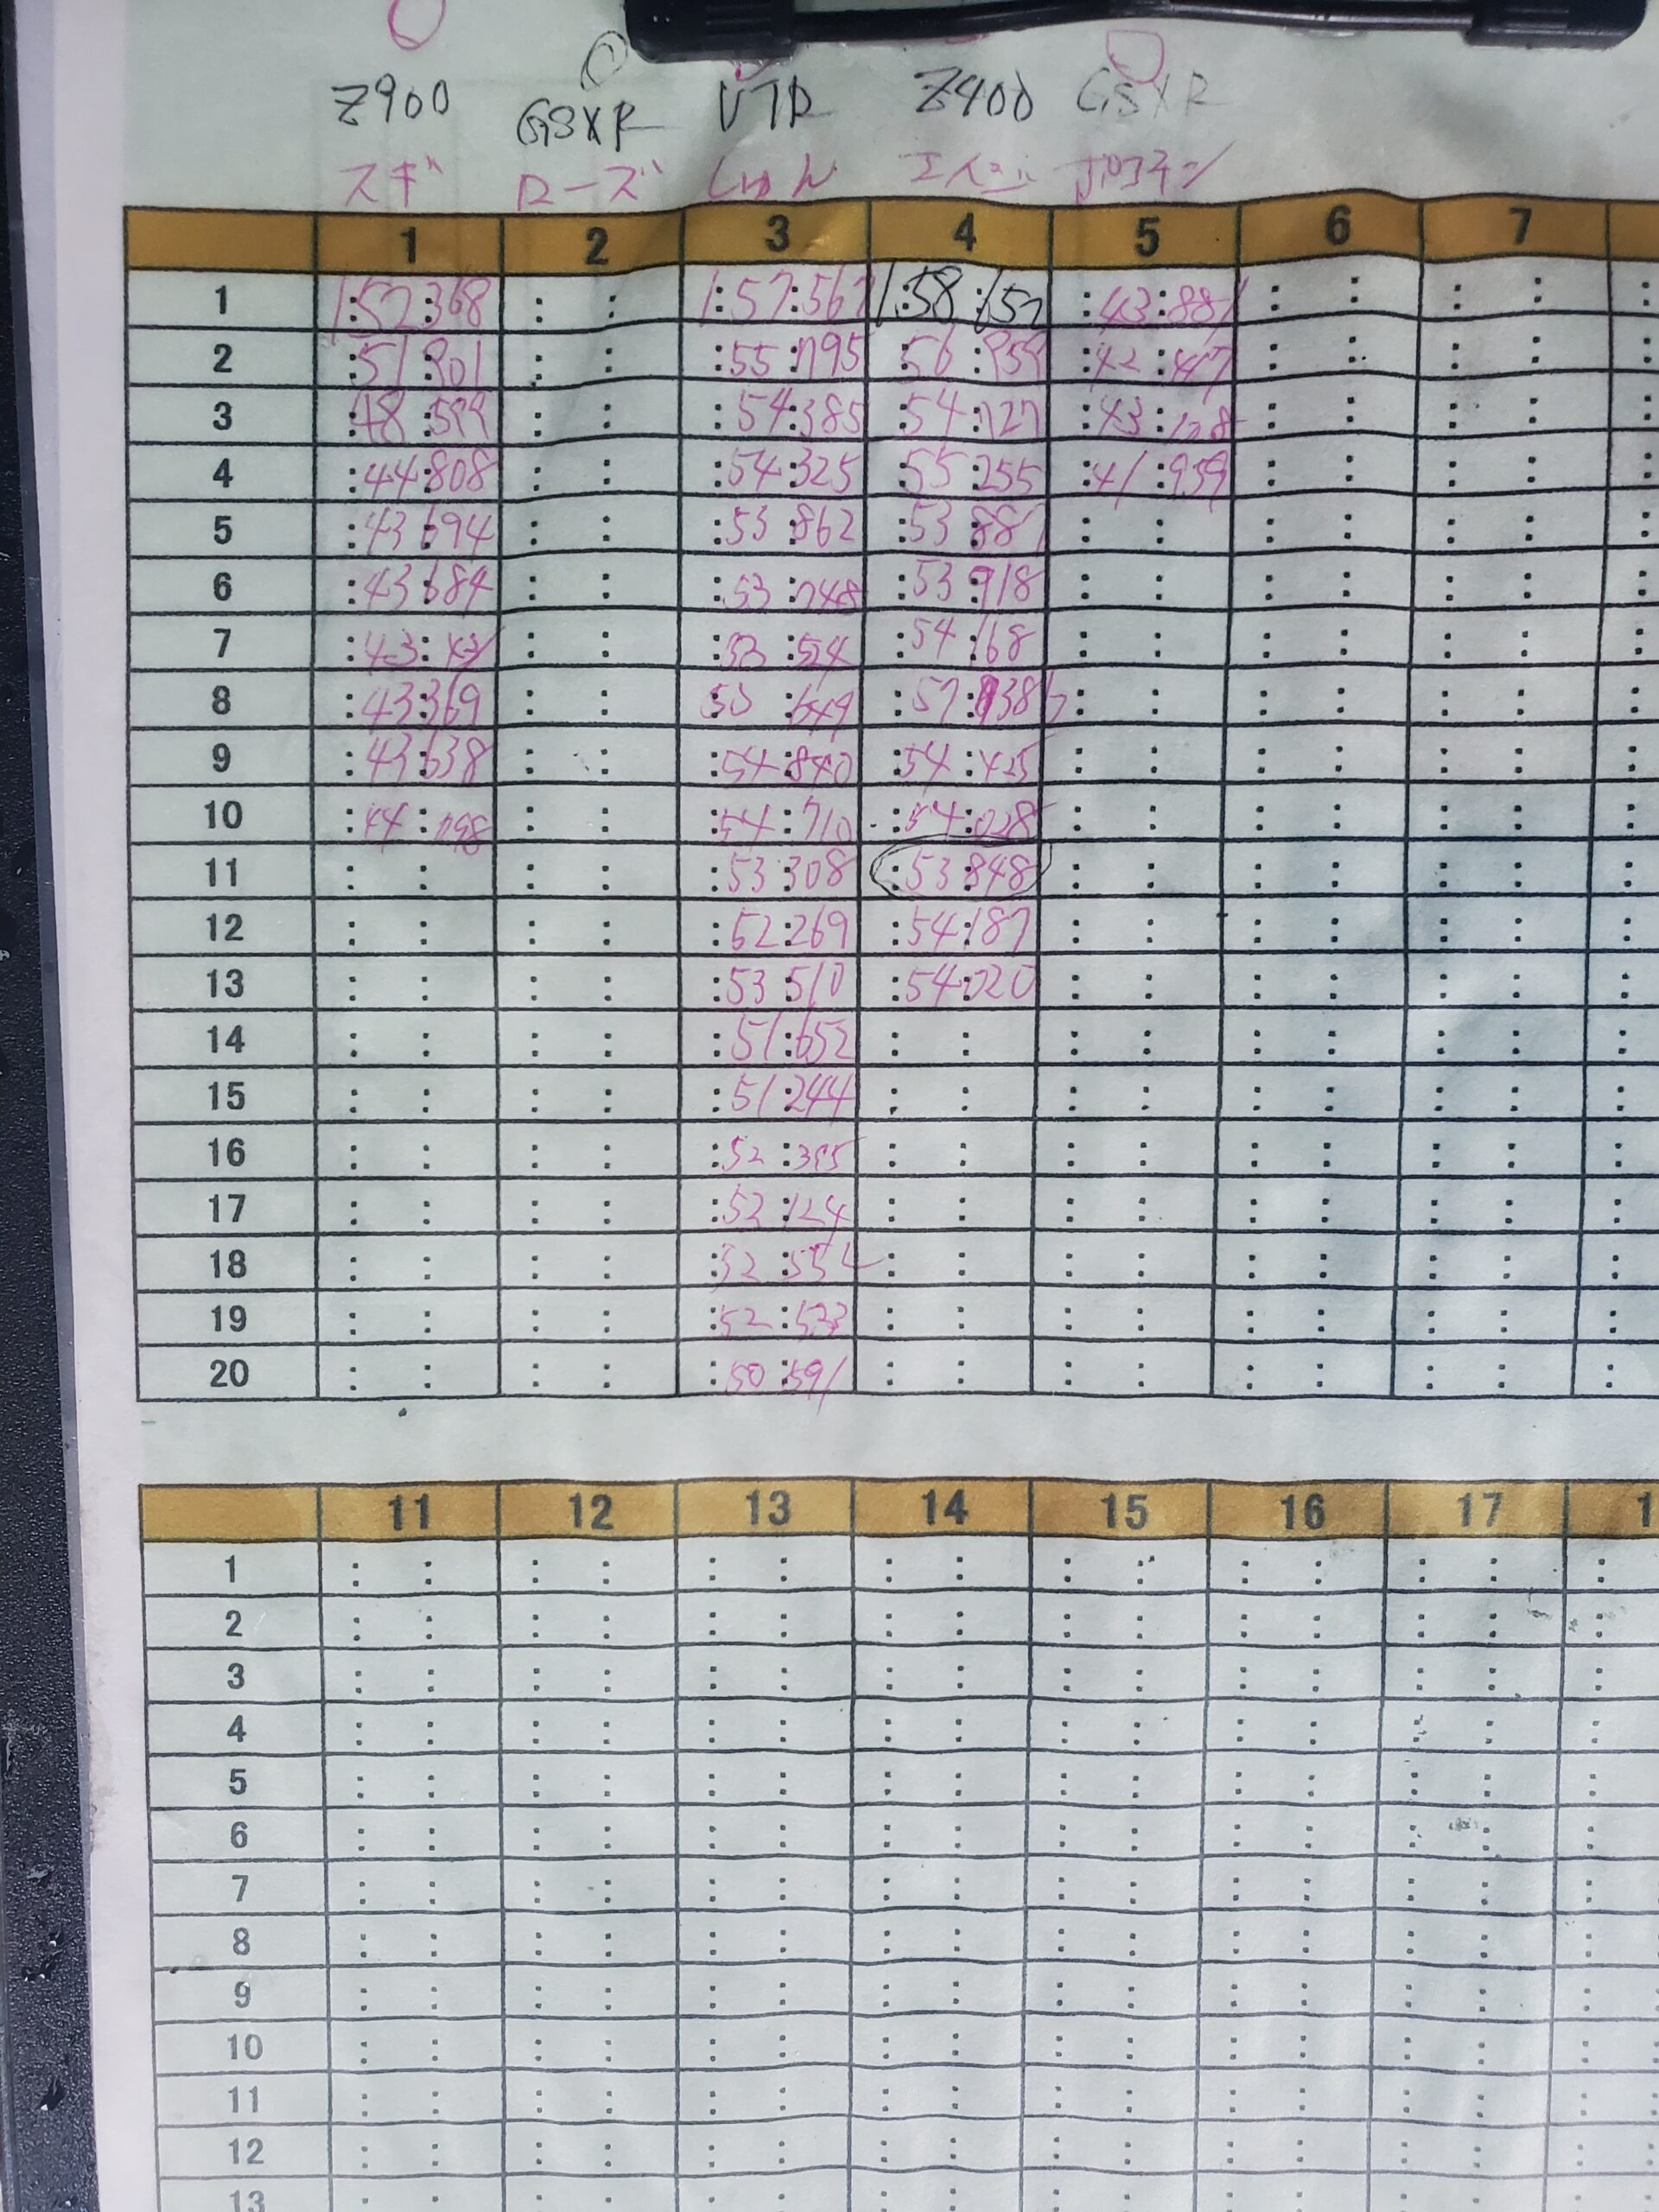 Z900 GSXR VTR Z400 GSXR
スギ ローズ しゅん エイジ
1 2 3 4 5 6 7
1 1:52:368 : : 1:57:567 1:58:157 :43:881 : : : :
2 :51:801 : : :55:795 :56:859 :42:417 : : : :
3 :48:599 : : :54:385 :54:727 : : : :
4 :44:808 : : :54:325 :55:255 :41:959 : : : :
5 :43:694 : : :53:862 :53:881 : : : : : :
6 :43:684 : : :53:748 :53:918 : : : : : :
7 : : :54:168 : : : : : :
8 :43:369 : : : : : : : :
9 :43:638 : : :54:840 :54:425 : : : : : :
10 :44:798 : : :54:710 :54:028 : : : : : :
11 : : : : :53:308 :53:848 : : : : : :
12 : : : : :52:269 :54:187 : : : : : :
13 : : : : :53:510 :54:020 : : : : : :
14 : : : : :51:652 : : : : : : : :
15 : : : : :51:244 : : : : : : : :
16 : : : : :52:395 : : : : : : : :
17 : : : : :52:124 : : : : : : : :
18 : : : : :52:552 : : : : : : : :
19 : : : : :52:523 : : : : : : : :
20 : : : : :50:591 : : : : : : : :
11 12 13 14 15 16 17 1
1 : : : : : : : : : : : : : : :
2 : : : : : : : : : : : : : : :
3 : : : : : : : : : : : : : : :
4 : : : : : : : : : : : : : : :
5 : : : : : : : : : : : : : : :
6 : : : : : : : : : : : : : : :
7 : : : : : : : : : : : : : : :
8 : : : : : : : : : : : : : : :
9 : : : : : : : : : : : : : : :
10 : : : : : : : : : : : : : : :
11 : : : : : : : : : : : : : : :
12 : : : : : : : : : : : : : : :
13